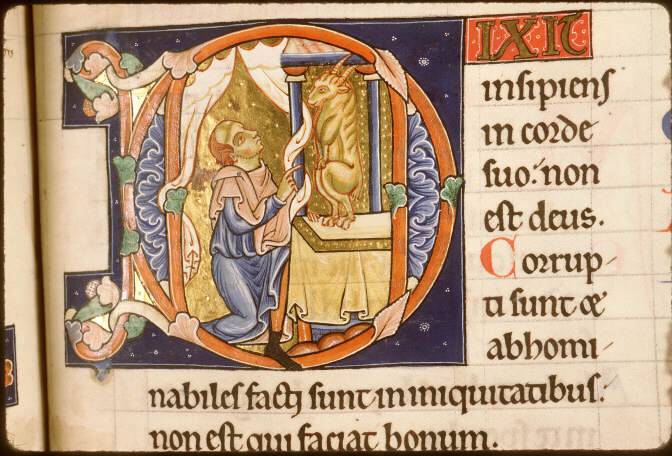 DIXIT
insipiens
in corde
suo: non
est deus.
Corrup-
ti sunt &
abhomi-
nabiles facti sunt in iniquitatibus:
non est qui faciat bonum.